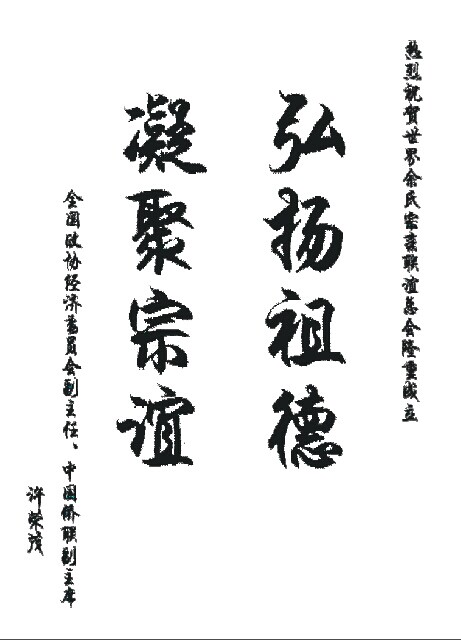 热烈祝贺世界余氏宗亲联谊总会隆重成立
弘扬祖德
凝聚宗谊
全国政协经济委员会副主任、中国侨联副主席
许荣茂